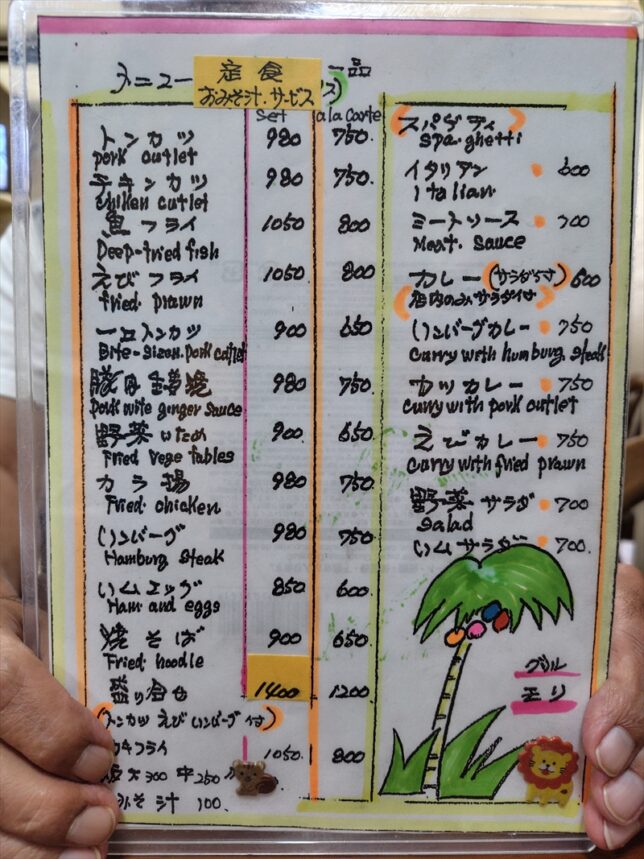 メニュー
定食
おみそ汁・サービス
一品
Set
a la carte
トンカツ 980 750.
pork cutlet
チキンカツ 980 750.
chiken cutlet
魚フライ 1050 800
Deep-fried fish
えびフライ 1050 800
fried prawn
一口トンカツ 900 650
Bite-sizen pork cutlet
豚肉生姜焼 980 750.
pork wite ginger sauce
野菜いため 900 650
Fried vegetables
カラ揚 980 750
Fried chicken
ハンバーグ 980 750.
Hamburg steak
ハムエッグ 850 600
Ham and eggs
焼そば 900 650
Fried noodle
盛り合せ 1400 1200
(トンカツ えび ハンバーグ 付)
カキフライ 1050. 800
大300 中250
みそ汁 100.
(スパゲティ)
Spaghetti
イタリアン 600
Italian
ミートソース 700
Meat sauce
カレー(サラダ付) 600
(店内のみサラダ付)
ハンバーグカレー 750
curry with humburg steak
カツカレー 750
curry with pork cutlet
えびカレー 750
curry with fried prawn
野菜サラダ 700
Salad
ハムサラダ 700.
グリル
モリ